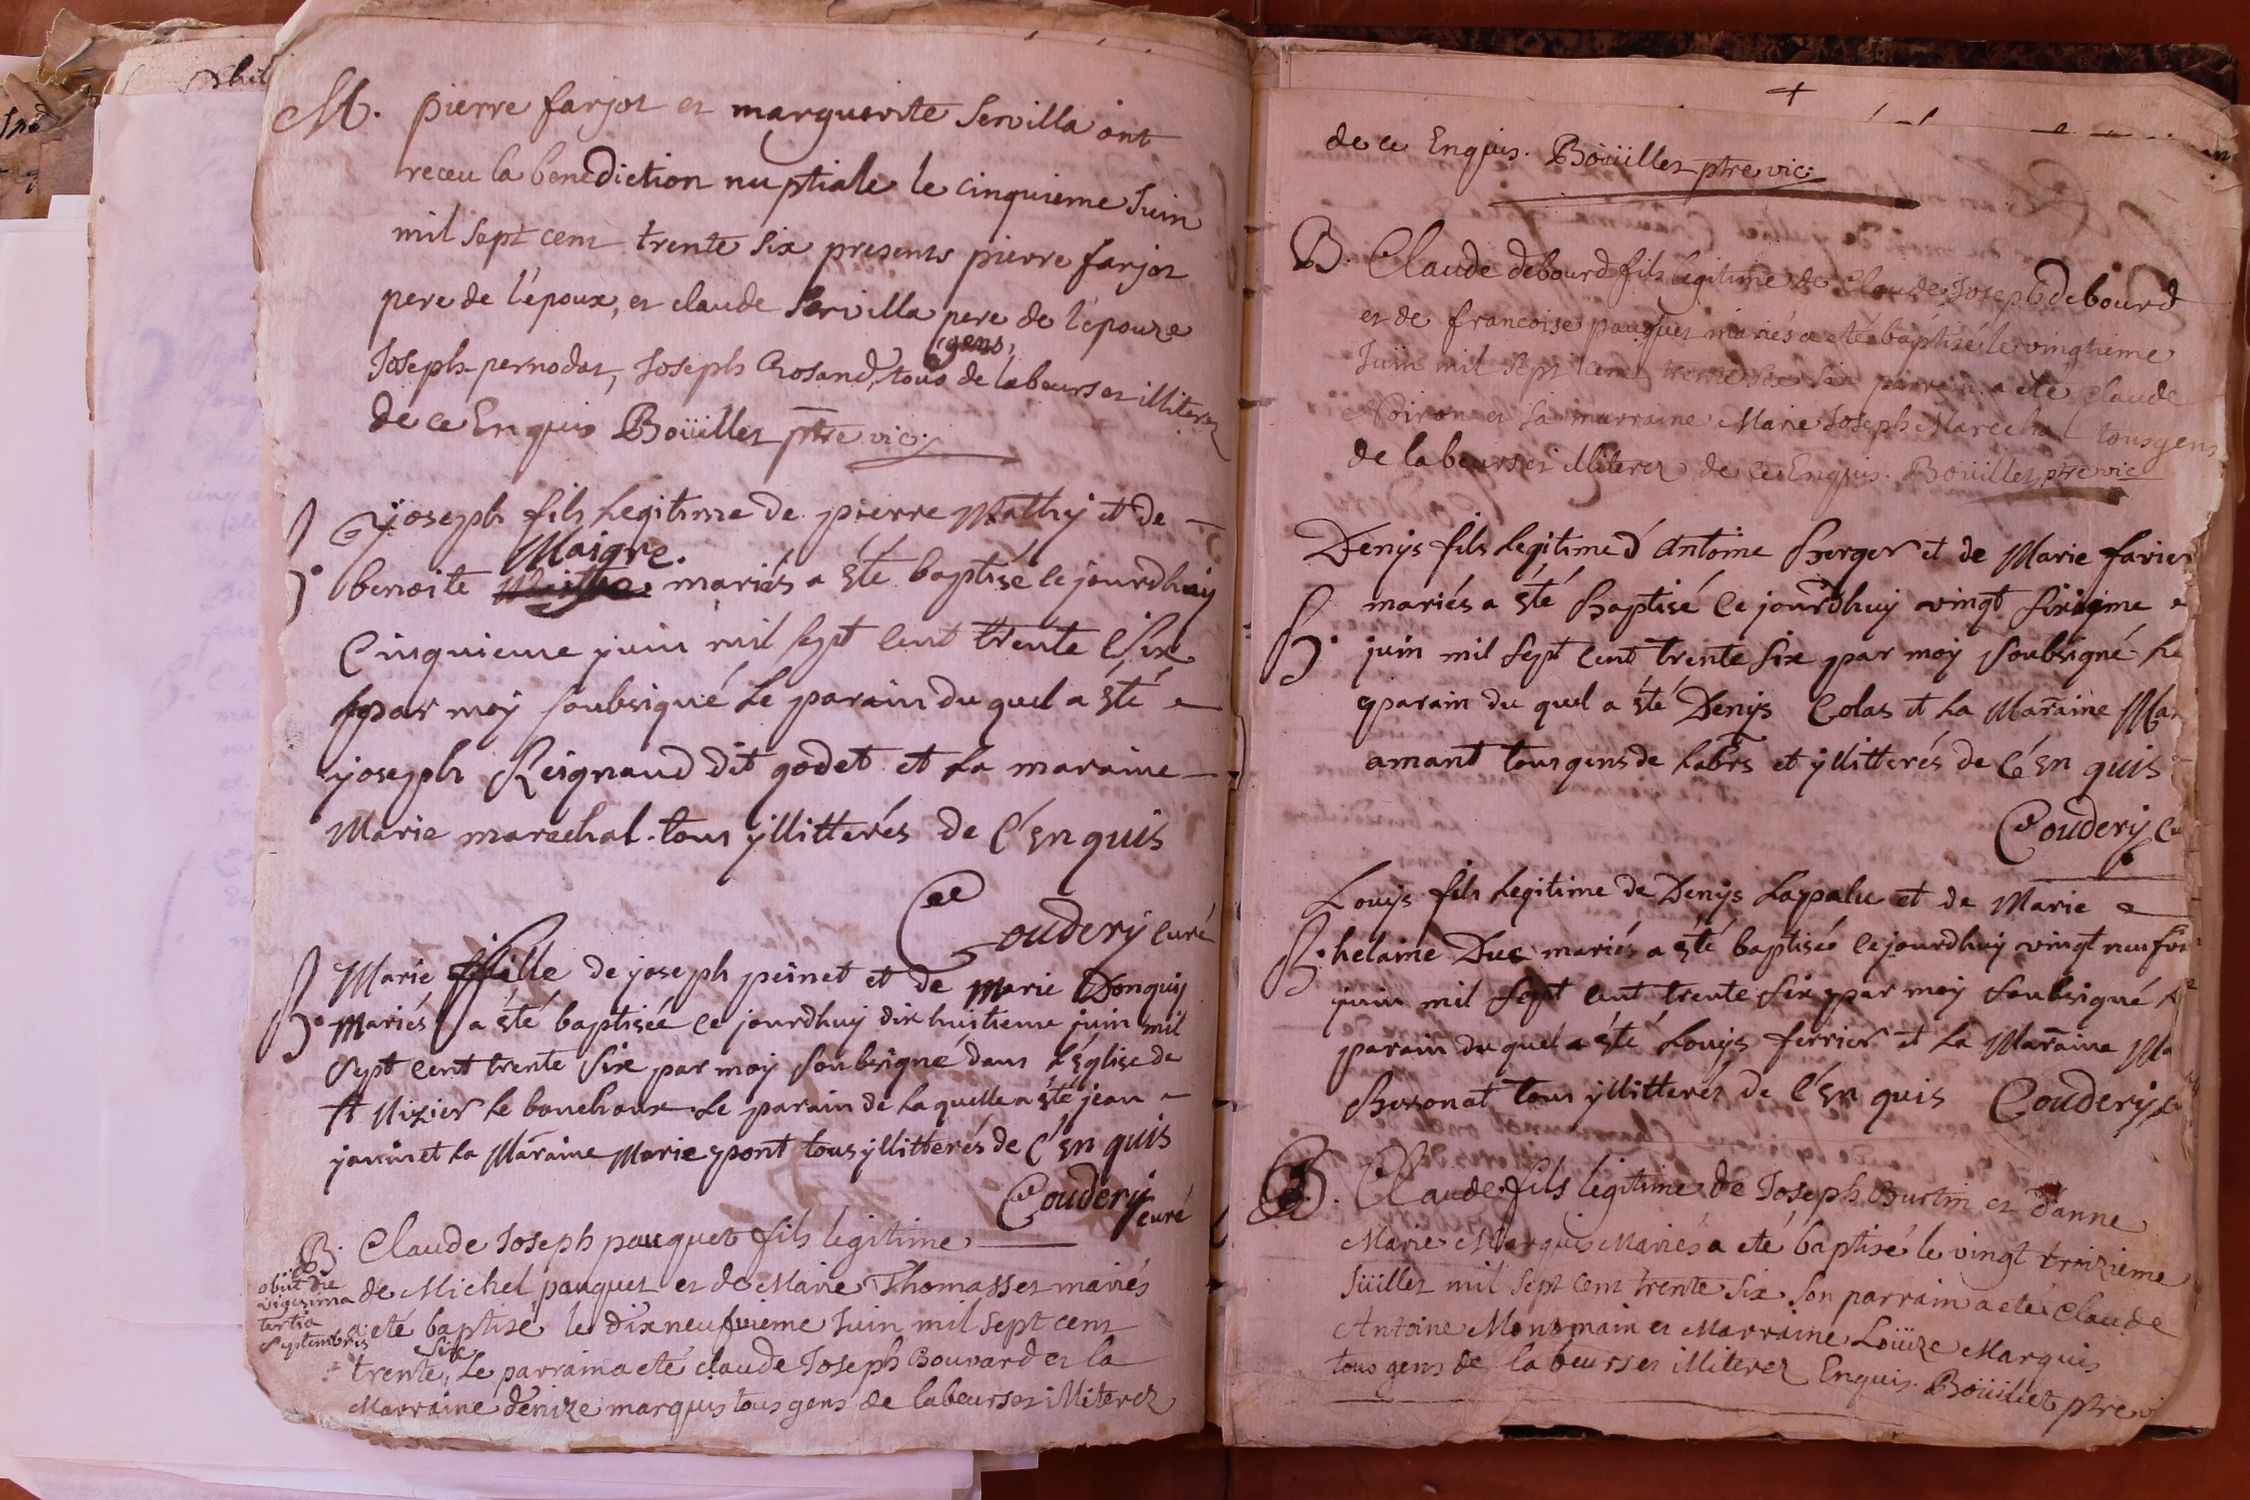 M. pierre farjot et marguerite Servilla ont
receu la benediction nuptiale le cinquieme Juin
mil sept cent trente six presents pierre farjot
pere de l'époux, et claude Servilla pere de l'épouze
gens
Joseph pernodat, Joseph Crosand, tous de labeurs et illiterez
de ce Enquis Boüillet ptre vic:
yoseph fils Legitime de pierre Mathy et de
Maigre.
B. benoite mariés a été baptisé ce jourdhuy
Cinquieme juin mil sept cent trente Six
par moy soubsigné Le parain du quel a été
joseph Reignaud dit godet et La maraine
Marie marechal tous yllitterés de C'enquis
Coudery curé
Marie fille de joseph peinet et de Marie Donguy
B. Mariés a été baptisée ce jourdhuy dix huitieme juin mil
Sept cent trente Six par moy soubsigné dans L'Eglise de
St Nizier Le bouchoux Le parain de Laquelle a été jean
janin et La Maraine Marie pont tous yllitterés de C'enquis
Coudery curé
B. Claude Joseph pauquet fils legitime
de Michel pauquet et de Marie Thomasset mariés
a eté baptisé le dixneufvieme Juin mil sept cent
six
trente, Le parrain a eté claude Joseph Bouvard et la
Marraine denize marquis tous gens de labeurs et illiterez
obiit die
vigesima
tertia
septembris
de ce Enquis. Boüillet ptre vic:
B. Claude debourd fils legitime de Claude Joseph debourd
et de francoise pauquet mariés a eté baptisé le vingtieme
Juin mil sept cent trente six son parrain a eté Claude
Poiron et sa marraine Marie Joseph Marechal tous gens
de labeurs et illiterez de ce Enquis. Boüillet ptre vic
Denys fils Legitime d'Antoine Berger et de Marie farier
B. mariés a été baptisé ce jourdhuy vingt sixieme
juin mil sept cent trente six par moy soubsigné Le
parain du quel a été Denys Colas et La Maraine Mar
amant tous gens de Labrs et yllitterés de C'enquis
Coudery Cu
Louys fils Legitime de Denys Lapalu et de Marie
B. helaine Duc mariés a été baptiseé ce jourdhuy vingt neuf
juin mil Sept cent trente Six par moy Soubsigné
parain du quel a été Louys ferrier et La Maraine Ma
Beronat tous yllitterés de C'enquis Coudery
B. Claude fils legitime de Joseph Burtin et d'anne
Marie Marquis Mariés a eté baptisé le vingt troizieme
Juillet mil sept cent trente six son parrain a eté Claude
Antoine Monsmain et Marraine Loüize Marquis
tous gens de labeurs et illiterez Enquis. Boüillet ptre vi